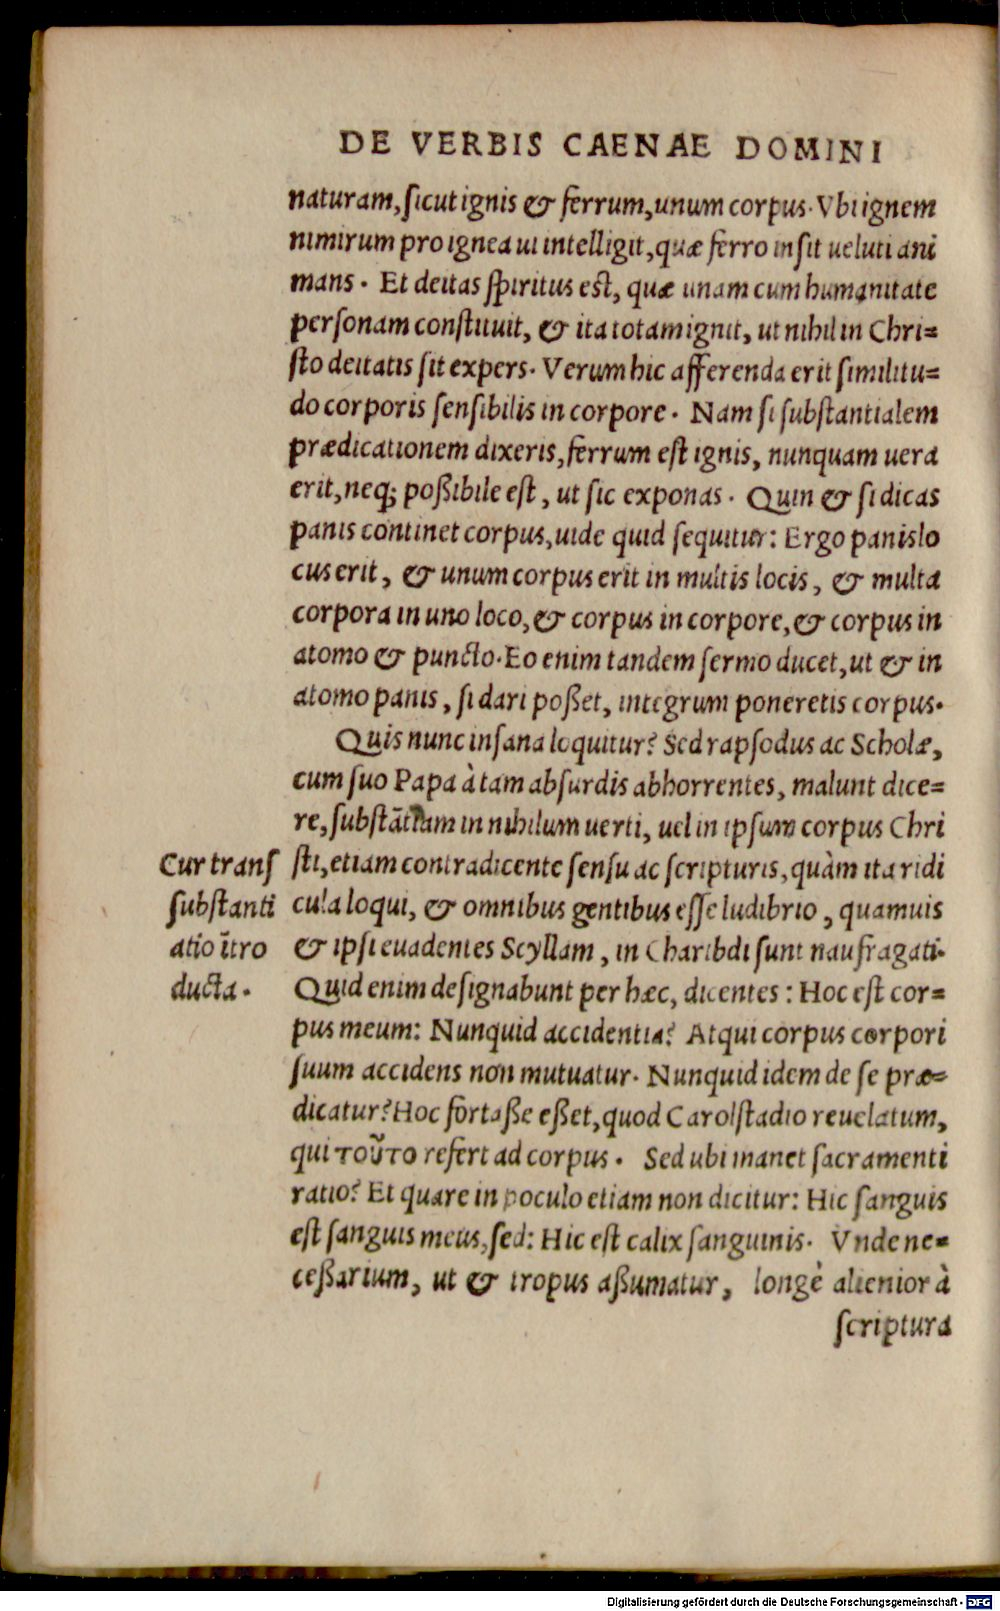 DE VERBIS CAENAE DOMINI
naturam, ſicut ignis & ferrum, unum corpus. Vbi ignem
nimirum pro ignea ui intelligit, quæ ferro inſit ueluti ani
mans. Et deitas ſpiritus eſt, quæ unam cum humanitate
perſonam conſtituit, & ita totam ignit, ut nihil in Chri=
ſto deitatis ſit expers. Verum hic afferenda erit ſimilitu=
do corporis ſenſibilis in corpore. Nam ſi ſubſtantialem
prædicationem dixeris, ferrum eſt ignis, nunquam uera
erit, neq; poßibile eſt, ut ſic exponas. Quin & ſi dicas
panis continet corpus, uide quid ſequitur: Ergo panis lo
cus erit, & unum corpus erit in multis locis, & multa
corpora in uno loco, & corpus in corpore, & corpus in
atomo & puncto. Eo enim tandem ſermo ducet, ut & in
atomo panis, ſi dari poßet, integrum poneretis corpus.
Quis nunc inſana loquitur? Sed rapſodus ac Scholæ,
cum ſuo Papa à tam abſurdis abhorrentes, malunt dice=
re, ſubſtātiam in nihilum uerti, uel in ipſum corpus Chri
ſti, etiam contradicente ſenſu ac ſcripturis, quàm ita ridi
cula loqui, & omnibus gentibus eſſe ludibrio, quamuis
& ipſi euadentes Scyllam, in Charibdi ſunt naufragati.
Quid enim deſignabunt per hæc, dicentes: Hoc eſt cor=
pus meum: Nunquid accidentia? Atqui corpus corpori
ſuum accidens non mutuatur. Nunquid idem de ſe præ=
dicatur? Hoc fortaße eßet, quod Carolſtadio reuelatum,
qui τοῦτο refert ad corpus. Sed ubi manet ſacramenti
ratio? Et quare in poculo etiam non dicitur: Hic ſanguis
eſt ſanguis meus, ſed: Hic eſt calix ſanguinis. Vnde ne=
ceßarium, ut & tropus aßumatur, longè alienior à
ſcriptura
Cur tranſ
ſubſtanti
atio ītro
ducta.
Digitalisierung gefördert durch die Deutsche Forschungsgemeinschaft - DFG